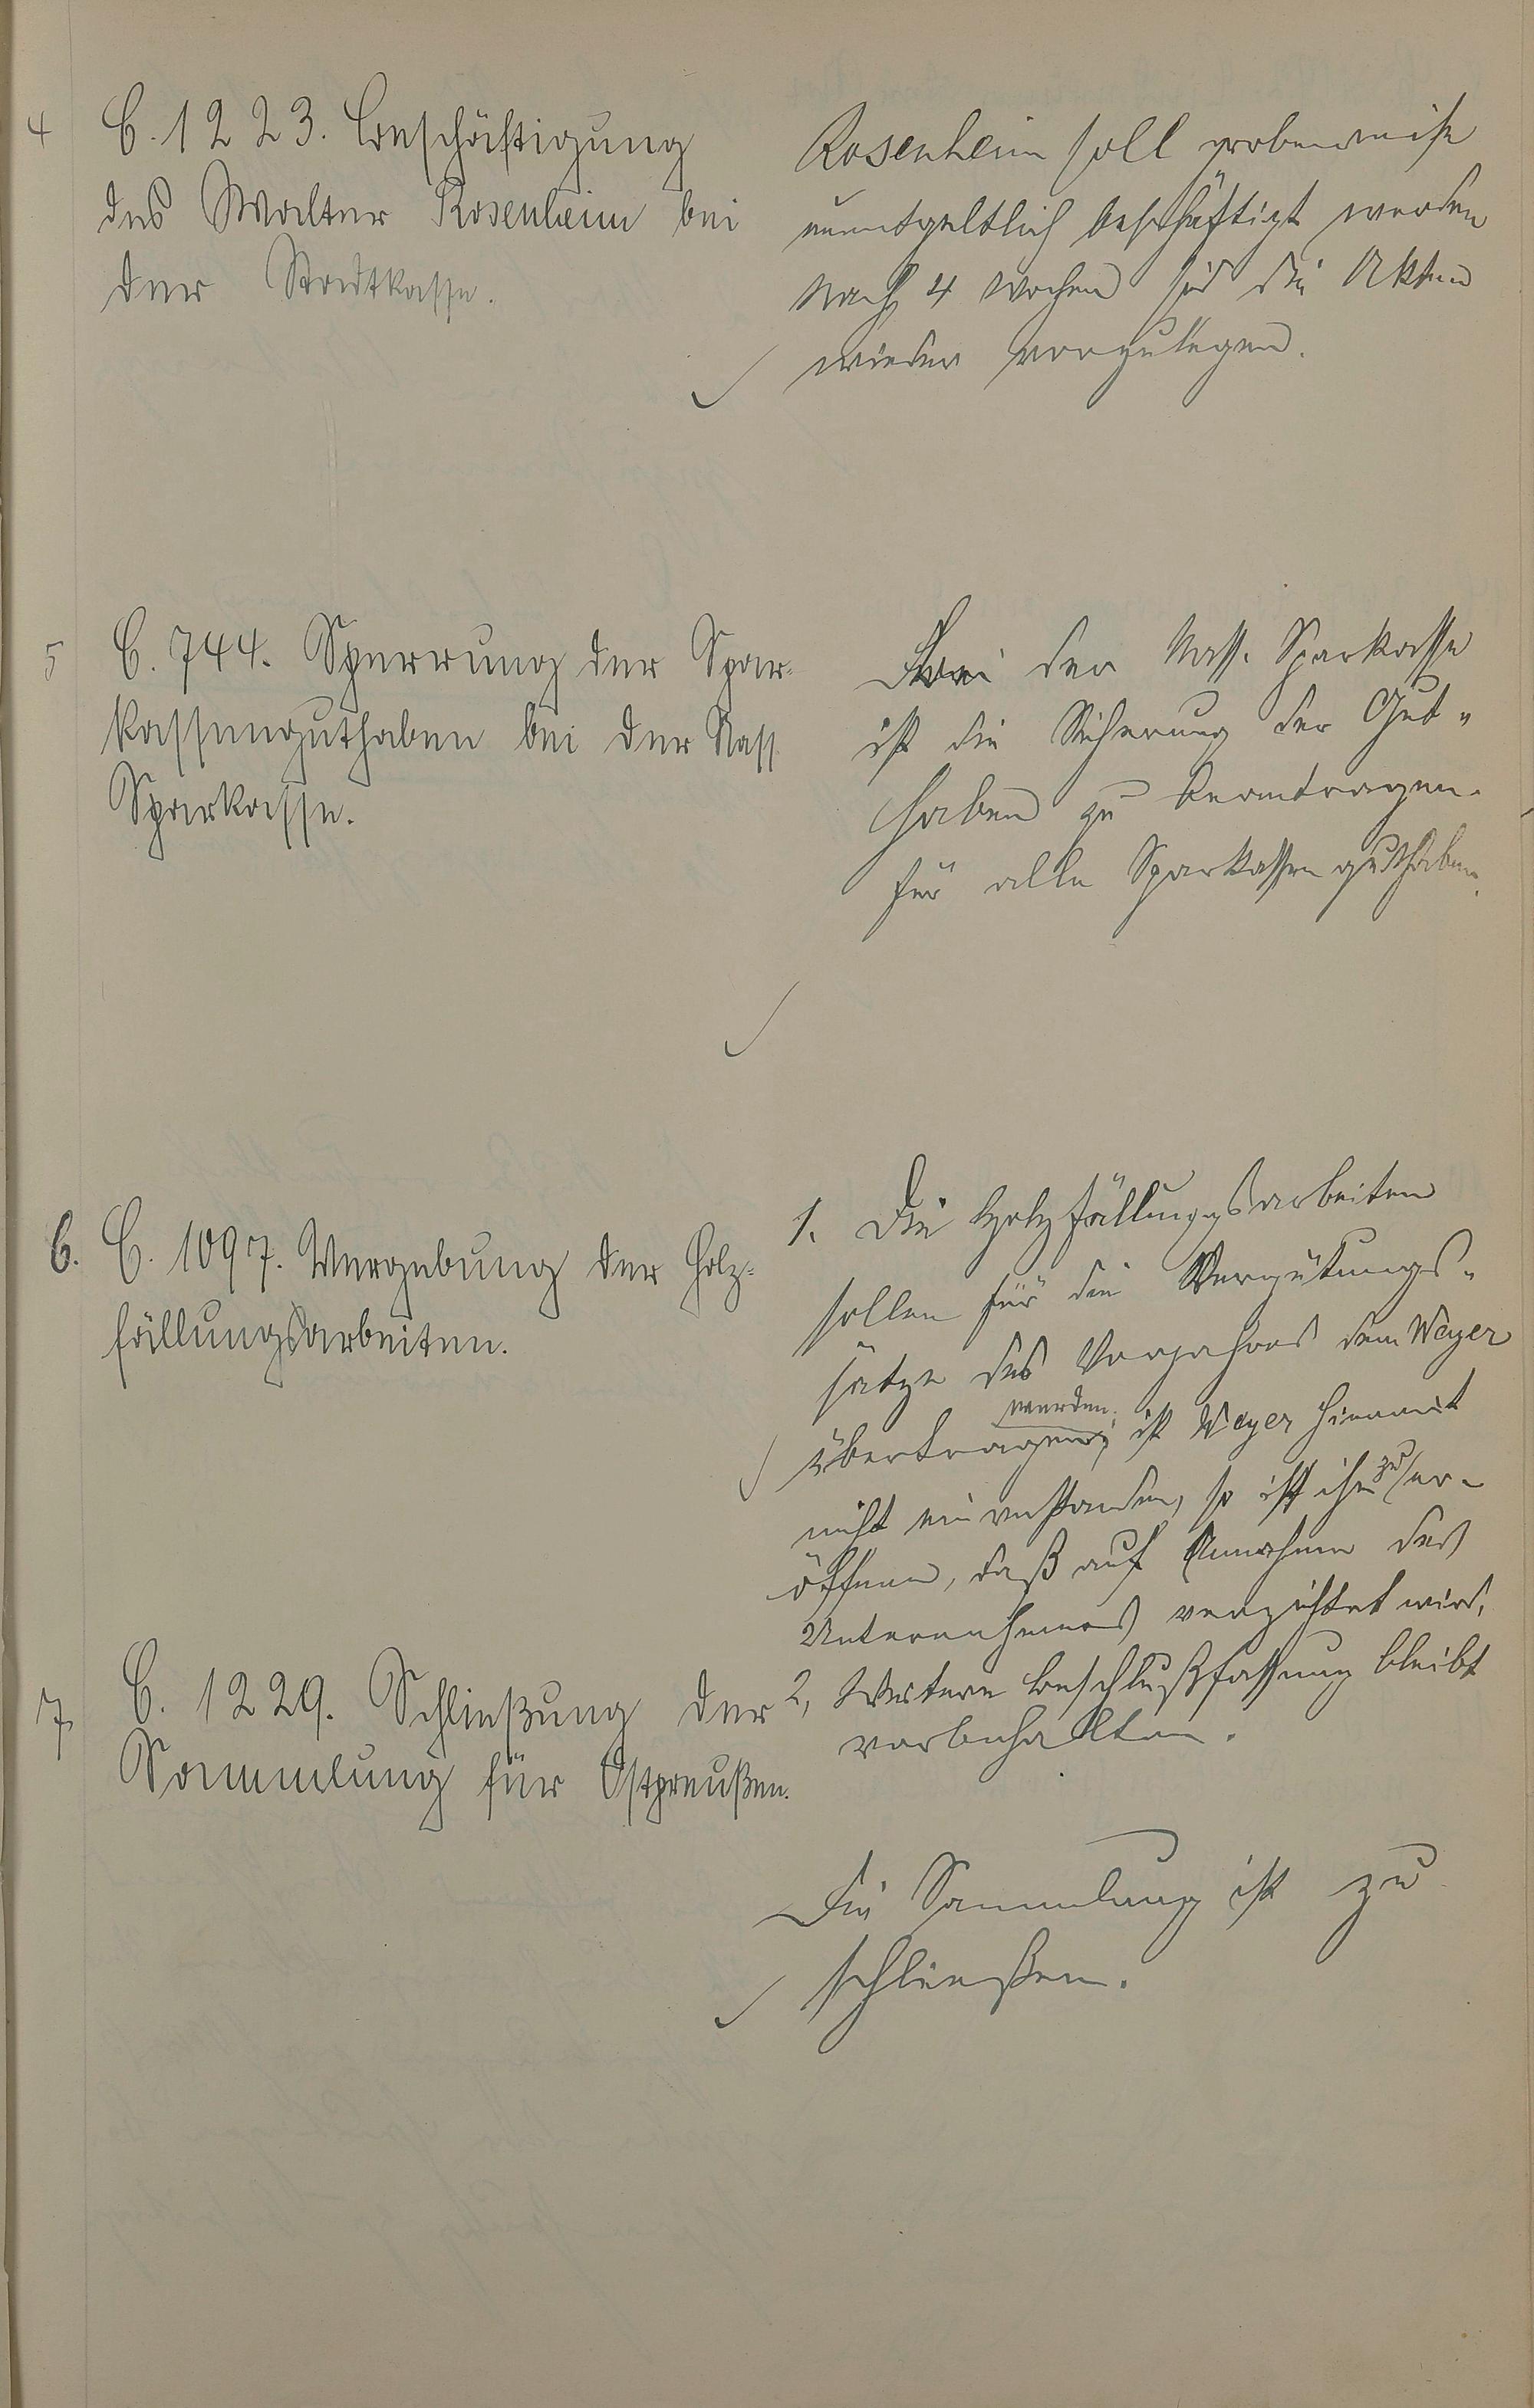 4 C. 1223. Beschäftigung
des Walter Rosenheim bei
der Stadtkasse.
Rosenheim soll probeweise
unentgeltlich beschäftigt werden
Nach 4 Wochen sind die Akten
wieder vorzulegen.
5 C. 744. Sperrung der Spar-
kassenguthaben bei der Nass
Sparkasse.
Bei der Nass. Sparkasse
ist die Sicherung der Gut-
haben zu beantragen.
für alle Sparkassenguthaben.
6. C. 1097. Vergebung der Holz-
fällungsarbeiten.
1. Die Holzfällungsarbeiten
sollen für die Vergütungs-
sätze des Vorjahres dem Weyer
übertragen werden; ist Weyer hiermit
nicht einverstanden, so ist ihm zu er-
öffnen, daß auf Annahme des
Unternehmers verzichtet wird,
2, Weitere Beschlußfassung bleibt
vorbehalten.
7, C. 1229. Schließung der
Sammlung für Ostpreußen.
Die Sammlung ist zu
schließen.